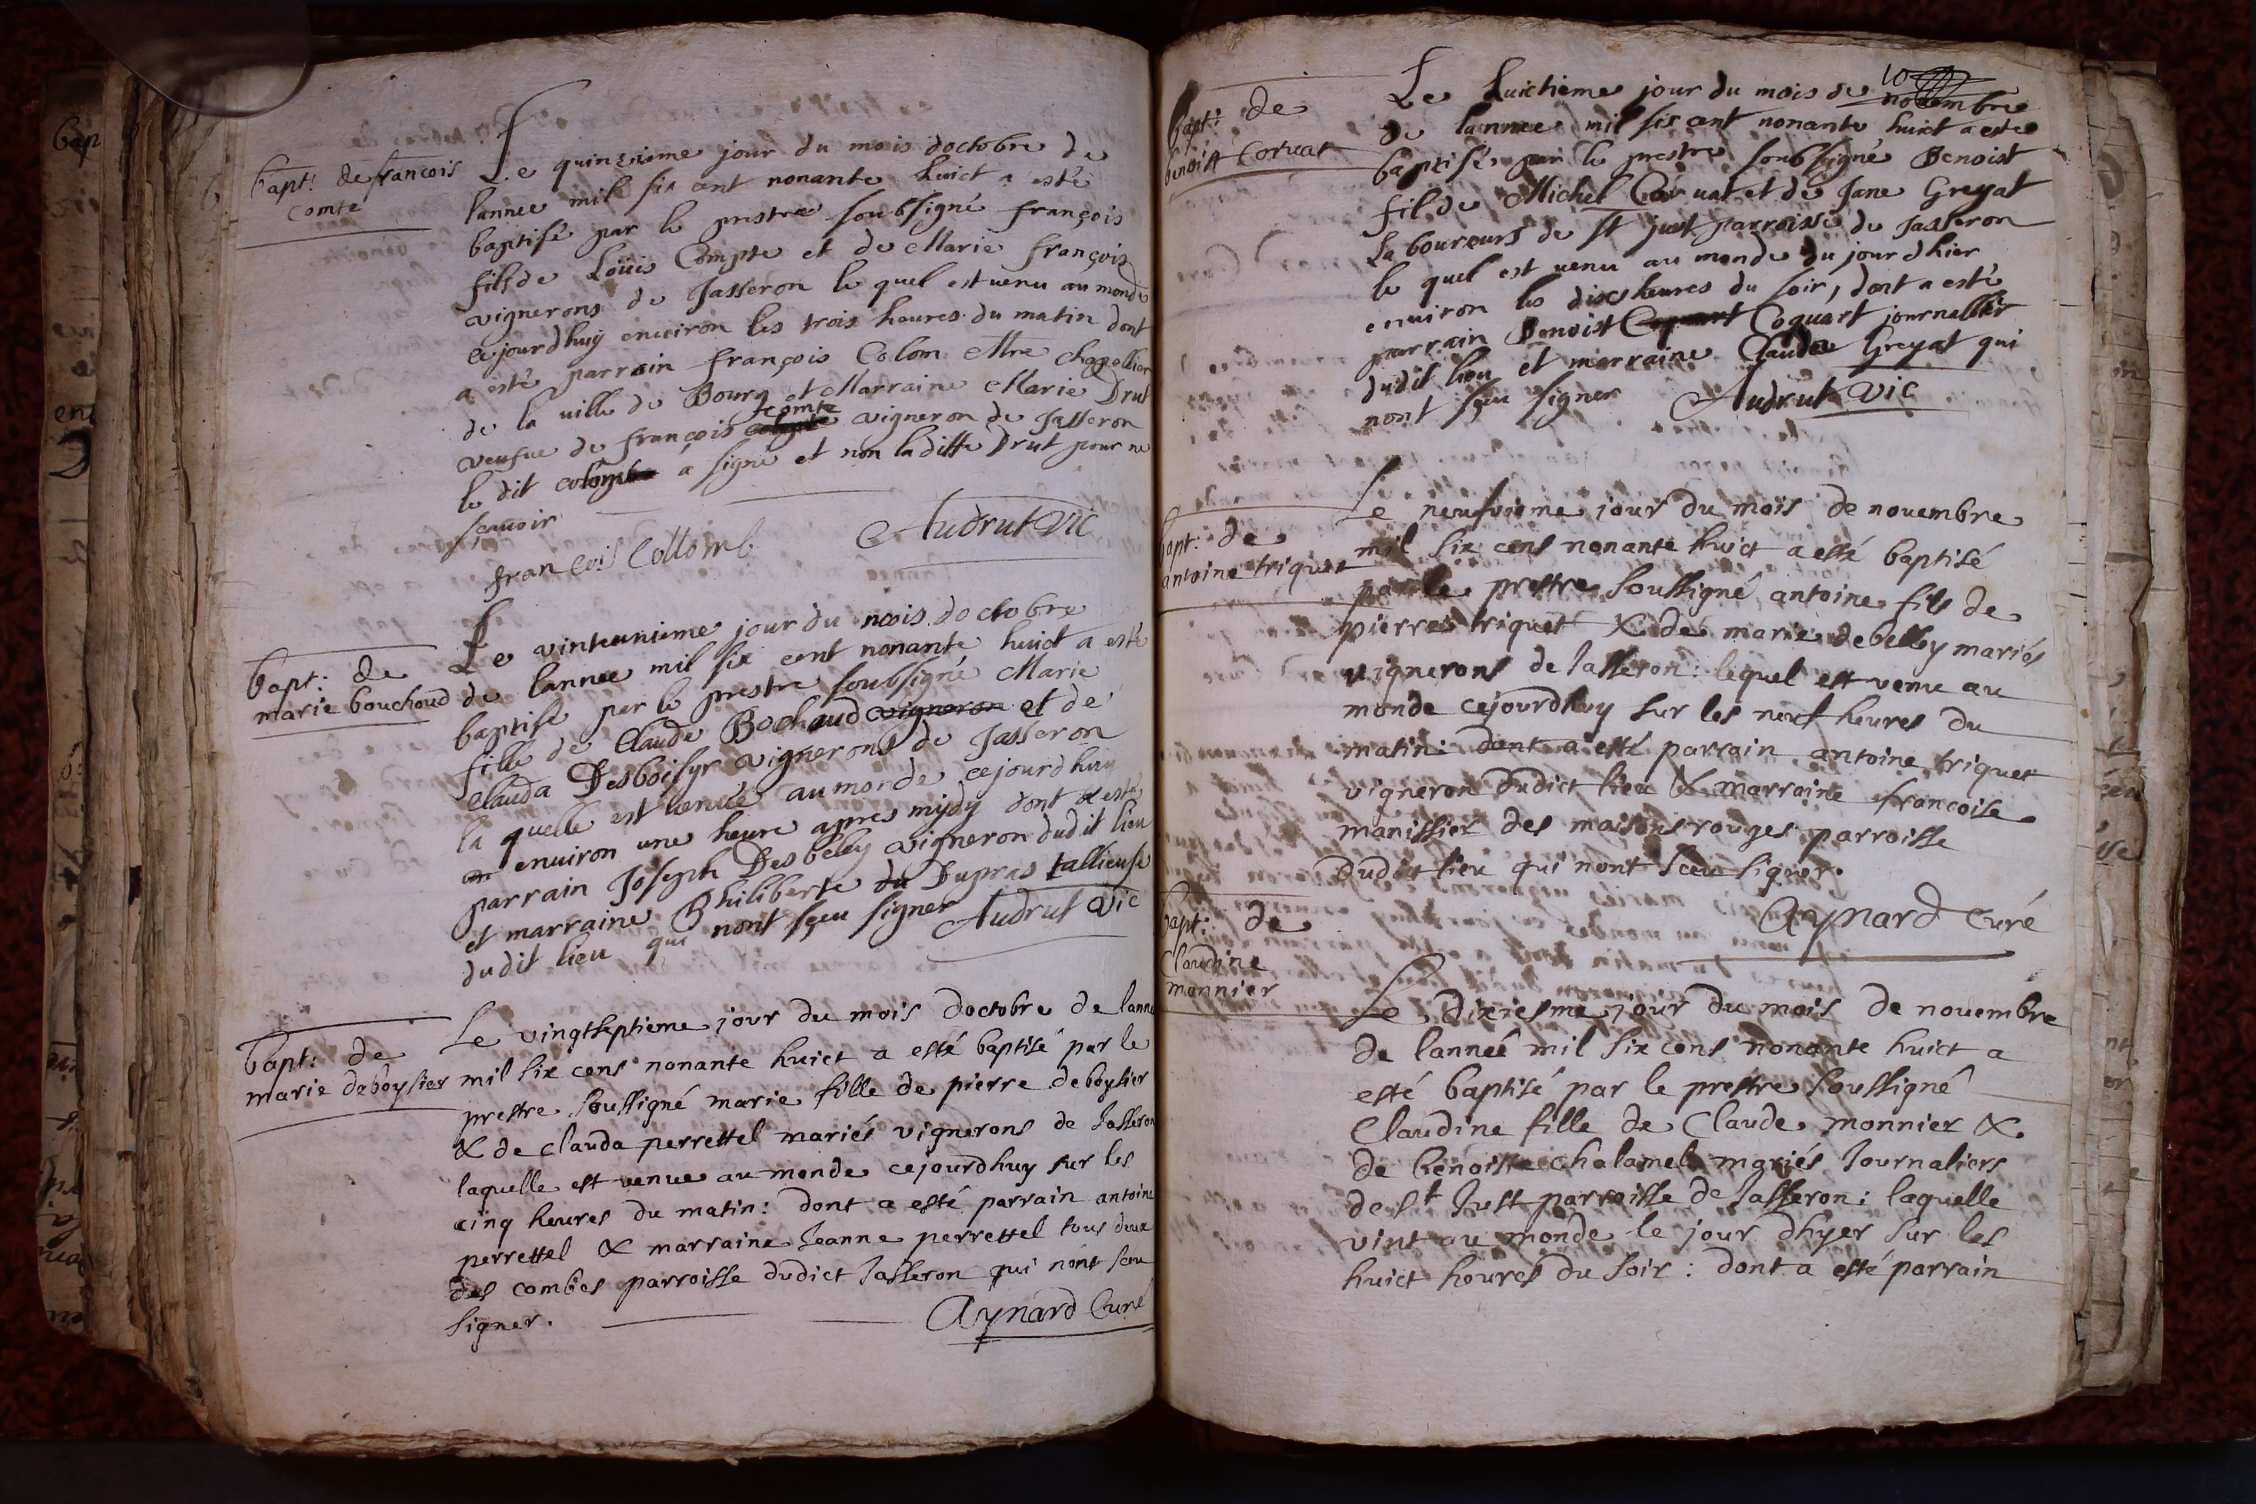 bapt: de francois
comte
Le quinzieme jour du mois doctobre de
lannee mil six cent nonante huict a esté
baptisé par le prestre soubsigné françois
fils de Loüis Compte et de Marie françois
vignerons de Jasseron le quel est venu au monde
cejourdhuy enuiron les trois heures du matin dont
a esté parrain françois Colom Mre chappellier
de la ville de Bourg et Marraine Marie Drut
veufue de françois comte vigneron de Jasseron
le dit colomb a signé et non laditte Drut pour ne
sçauoir
francois Collomb Audrut Vic
bapt: de
marie bouchoud
Le vinteunieme jour du mois doctobre
de lannee mil six cent nonante huict a esté
baptise par le prestre soubsigné Marie
fille de Claude Bochaud vigneron et de
Clauda Desboisyr vignerons de Jasseron
la quelle est venüe au monde cejourdhuy
enuiron une heure apres mydy dont a esté
parrain Joseph Desbelley vigneron dudit lieu
et marraine Philiberte du Dupras tallieuse
dudit lieu qui nont sçeu signer Audrut Vic
bapt: de
marie deboysier
Le vingtseptieme jour du mois doctobre de lanne
mil six cens nonante huict a esté baptisé par le
prestre soussigné marie fille de pierre deboysier
& de clauda perrettel mariés vignerons de Jasseron
laquelle est venue au monde cejourdhuy sur les
cinq heures du matin: dont a esté parrain antoine
perrettel & marraine Jeanne perrettel tous deux
des combes parroisse dudict Jasseron qui nont sceu
signer.
Aynard Curé
bapt: de
benoist Coruat
Le huictieme jour du mois de novembre
de lannee mil six cent nonante huict a este
baptisé par le prestre soubsigné Benoist
fil de Michel Coruat et de Jane Greyat
Laboureurs de st just parroisse de Jasseron
le quel est venu au monde du jour dhier
enuiron les dix heures du soir, dont a esté
parrain Benoist Coquart Coquart journallier
dudit lieu et marraine Clauda Greyat qui
nont sçeu signer Audrut Vic
bapt: de
antoine triquet
Le neufuieme jour du mois de nouembre
mil six cens nonante huict a esté baptisé
par le prestre soussigné antoine fils de
pierre triquet & de marie debelley mariés
vignerons de Jasseron: lequel est venu au
monde cejourdhuy sur les neuf heures du
matin: dont a esté parrain antoine triquet
vigneron dudict lieu & marraine francoise
manissier des maisons rouges parroisse
dudict lieu qui nont sceu signer.
Aynard Curé
bapt: de
Claudine
monnier
Le dixiesme jour du mois de nouembre
de lanneé mil six cens nonante huict a
esté baptisé par le prestre soussigné
Claudine fille de Claude monnier &
de benoiste chalamel mariés Journaliers
de st Just parroisse de Jasseron: laquelle
vint au monde le jour dhyer sur les
huict heures du soir: dont a esté parrain